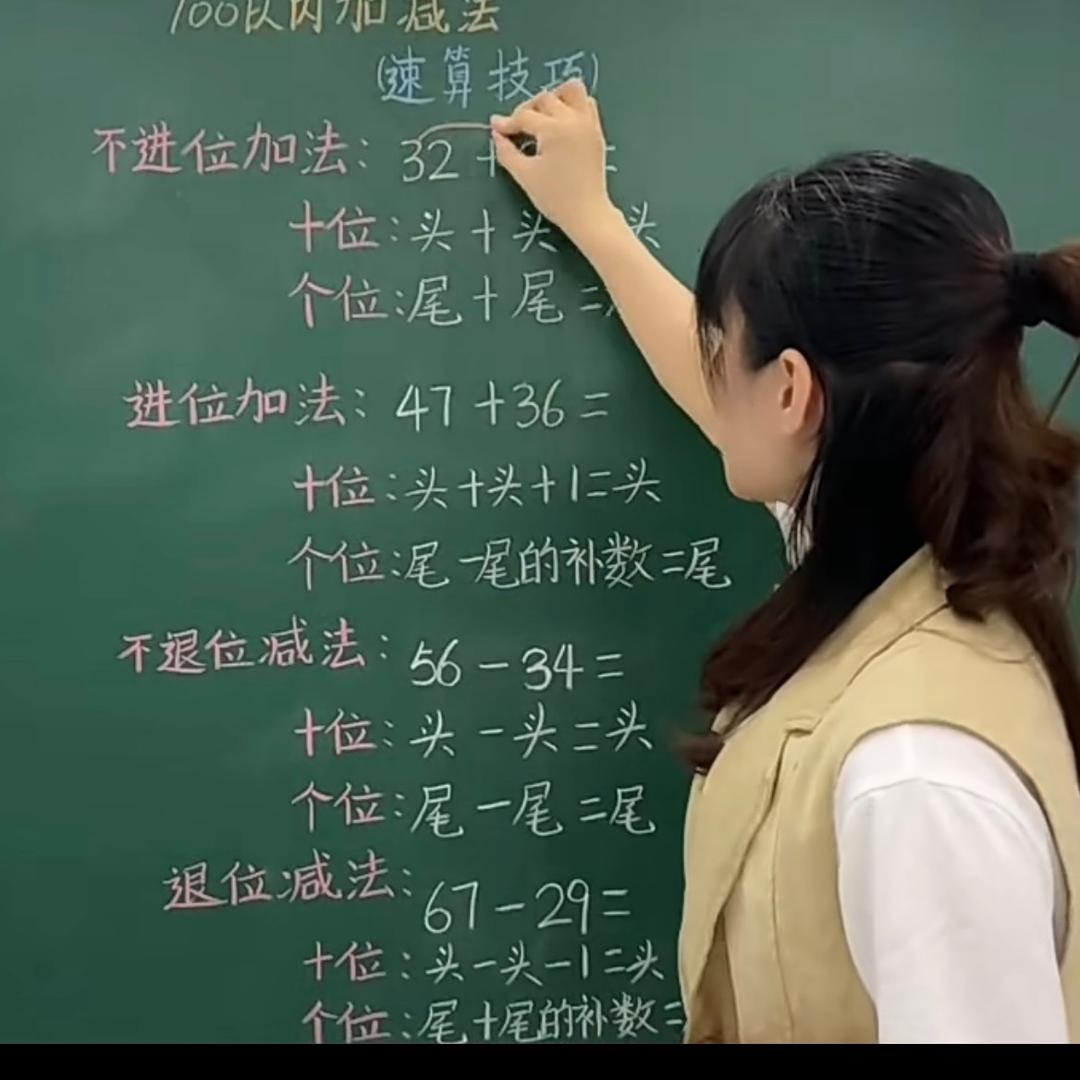 100以内加减法
(速算技巧)
不进位加法: 32 + =
十位:头+头 头
个位:尾+尾=
进位加法: 47+36=
十位:头+头+1=头
个位:尾-尾的补数=尾
不退位减法: 56-34=
十位:头-头=头
个位:尾-尾=尾
退位减法: 67-29=
十位:头-头-1=头
个位:尾+尾的补数=